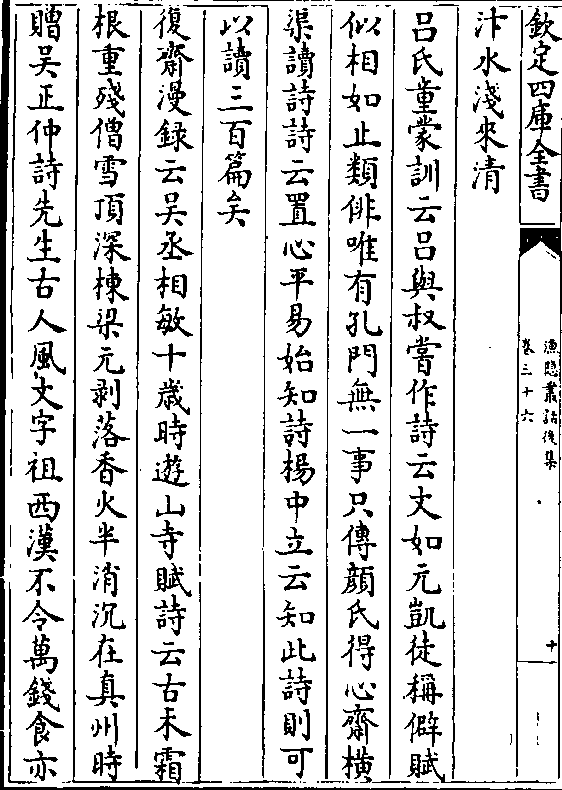 欽定四庫全書
漁隱叢話後集
卷三十六
十
汴水淺來清
吕氏童蒙訓云吕與叔嘗作詩云文如元凱徒稱僻賦
似相如止類俳唯有孔門無一事只傳顔氏得心齋横
渠讀詩詩云置心平易始知詩楊中立云知此詩則可
以讀三百篇矣
復齋漫録云吴丞相敏十歳時遊山寺賦詩云古木霜
根重殘僧雪頂深棟梁元剥落香火半消沉在真州時
贈吴正仲詩先生古人風文字祖西漢不令萬錢食亦